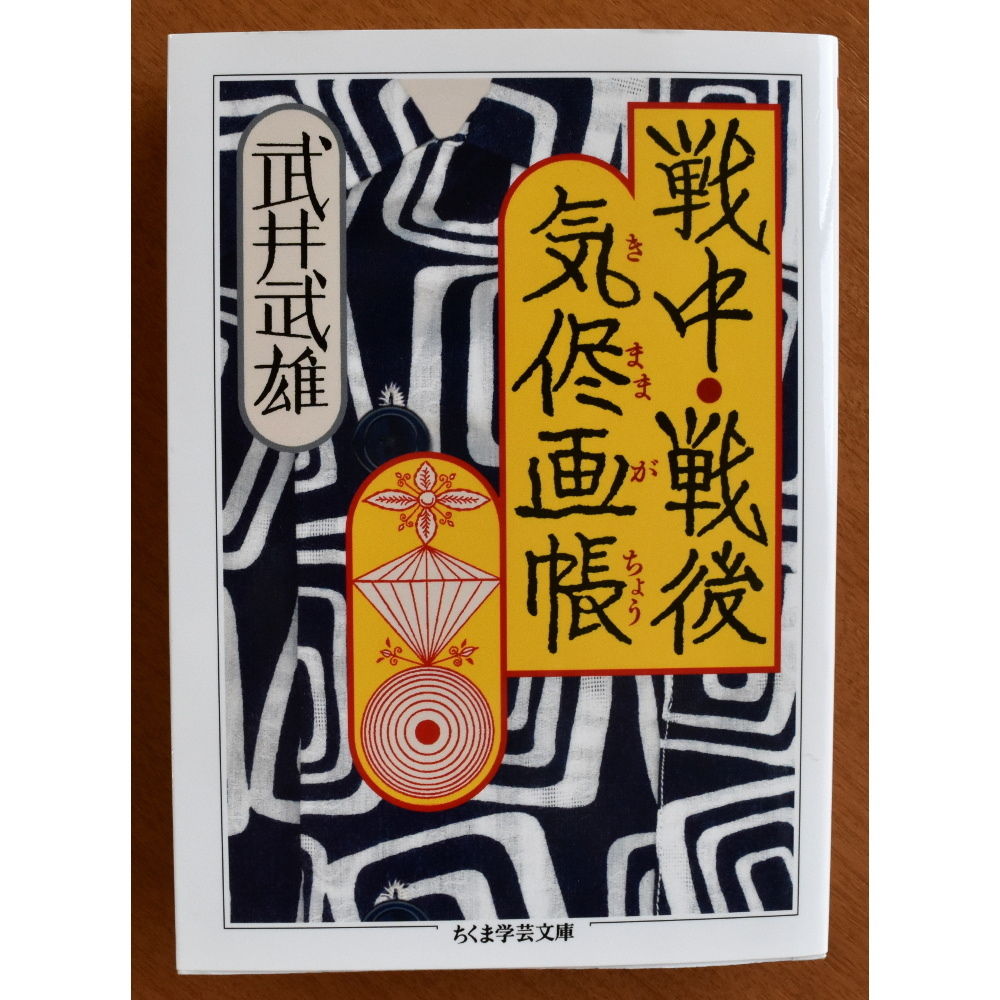 戦中・戦後
気侭画帳
きままがちょう
武井武雄
ちくま学芸文庫